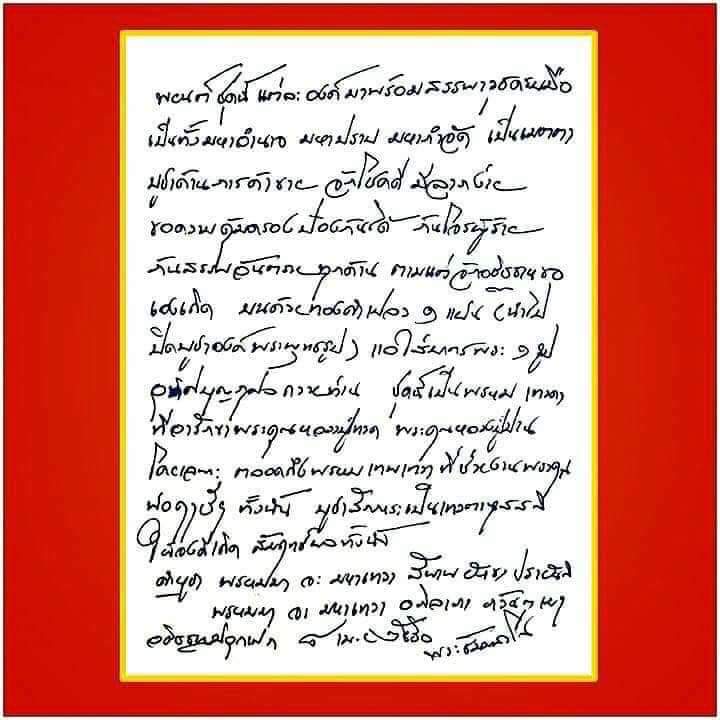 พยนต์ ชุดนี้ แต่ละ องค์ มาพร้อมสรรพาวุธครบมือ
เป็นทั้งมหาอำนาจ มหาปราบ มหากำจัด เป็นเมตตา
บูชาด้านการค้าขาย โชคดี มีลาภง่าย
ขอความคุ้มครองป้องกันได้ กันโจรผู้ร้าย
กันสรรพอันตรายทุกด้าน ตามแต่จักอธิษฐานขอ
เองเกิด บนด้วยทองคำเปลว ๑ แผ่น (นำไป
ปิดบูชาองค์พระพุทธรูป) แล้วใส่บาตรพระ ๑ รูป
อุทิศบุญกุศลถวายท่าน ชุดนี้เป็นพรหม เทวดา
ที่อารักขาพระคุณหลวงปู่ทวด พระคุณหลวงปู่
โดยเฉพาะ ตลอดถึงพรหมเทพเทวา ที่ช่วยงานพระคุณ
ทั้งนั้น บูชาระลึก เป็นเทวตานุสสติ
ให้ เกิด สัมฤทธิ์ผลทั้งนั้น
คำบูชา พรหมมา จะ มหาเทวา
พรหมมา จะ มหาเทวา
อธิษฐานปลุกเสก ๘ เม.ย.
พระ